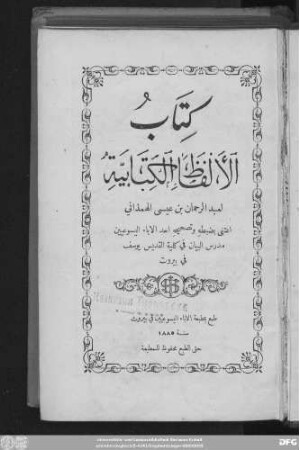 كِتَابُ
الأَلْفَاظِ الكِتَابِيَّةِ
لعبد الرحمان بن عيسى الهمذاني
اعتنى بضبطه وتصحيحه احد الآباء اليسوعيين
مدرس البيان في كلية القديس يوسف
في بيروت
طبع بمطبعة الآباء اليسوعيين في بيروت
سنة ١٨٨٥
حق الطبع محفوظ للمطبعة
DFG